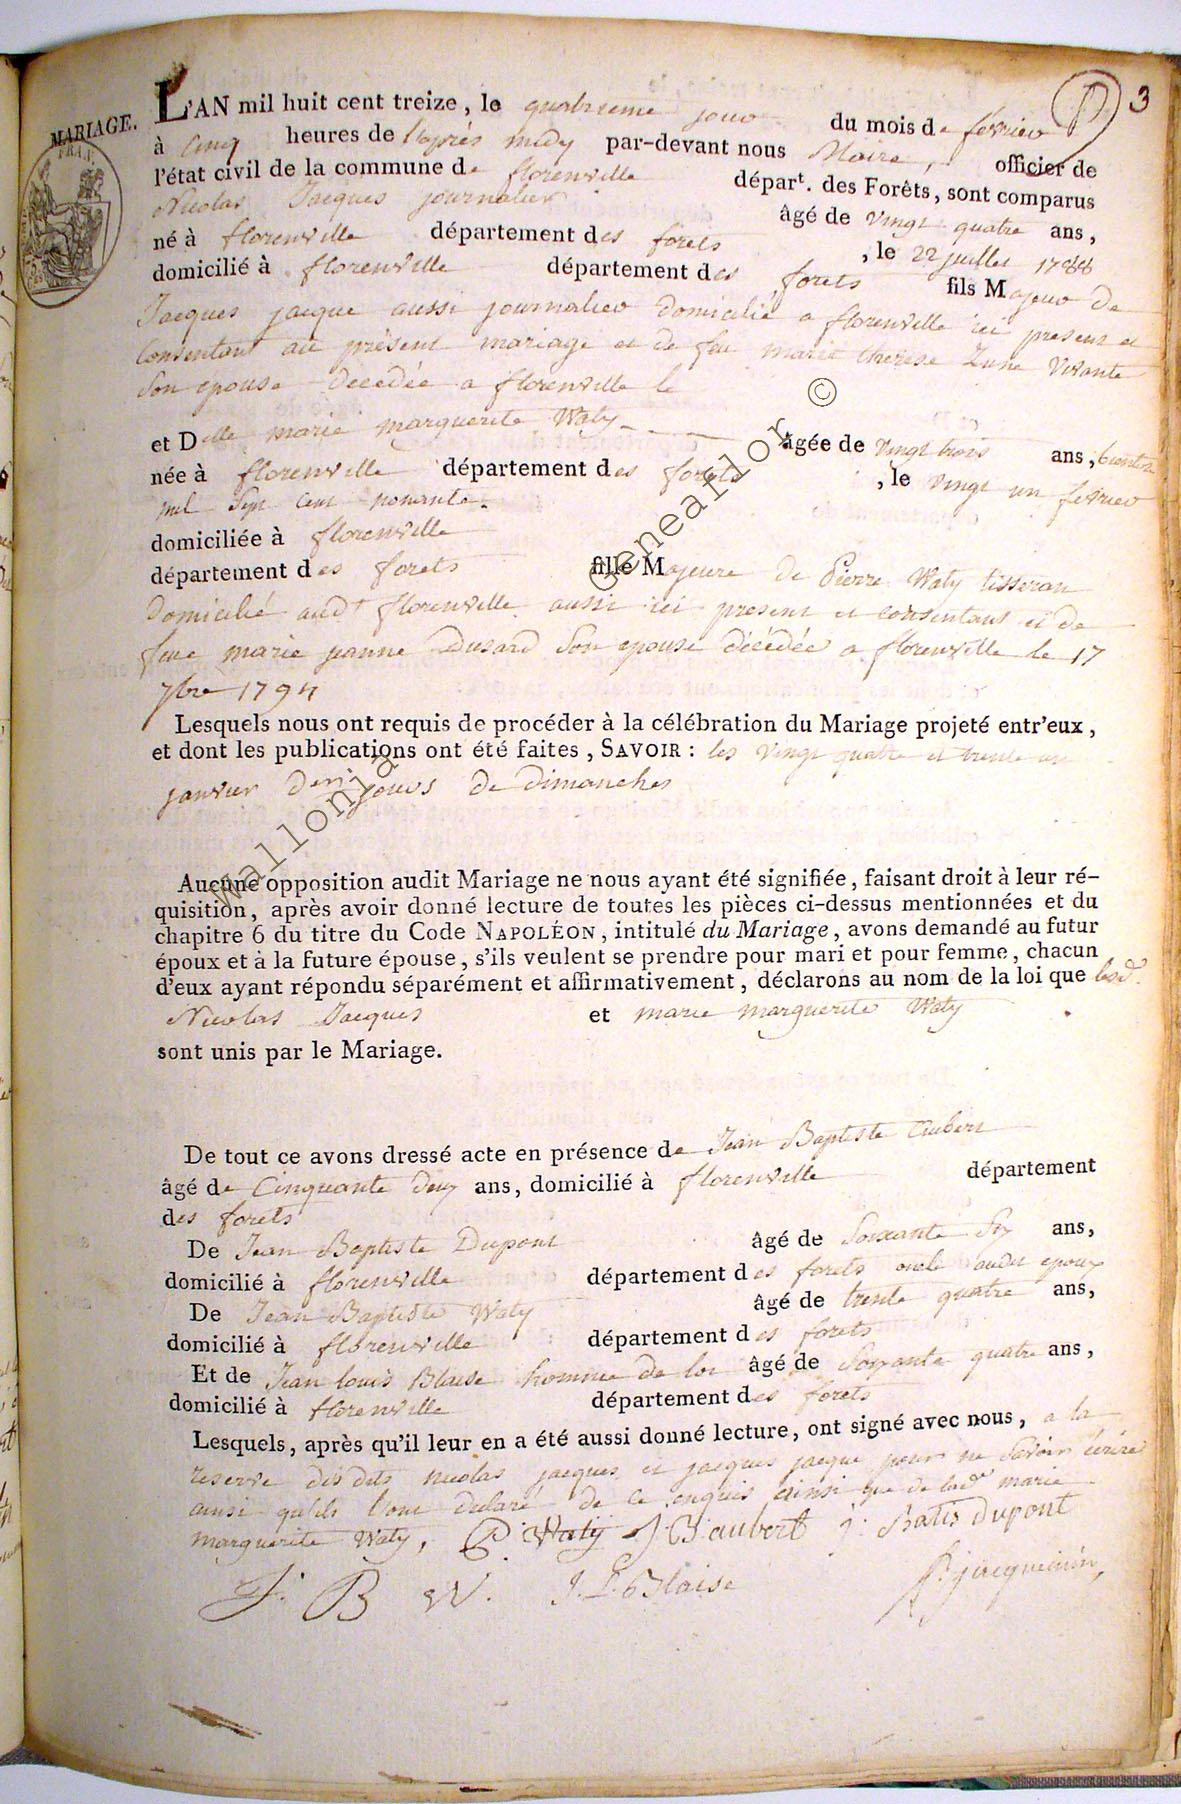 3
MARIAGE.
FRAN.
L'AN mil huit cent treize, le quatrieme jour du mois de fevrier
à cinq heures de l'après midy par-devant nous Maire, officier de
l'état civil de la commune de florenville dépar<sup>t</sup>. des Forêts, sont comparus
Nicolas Jacques journalier âgé de vingt quatre ans,
né à florenville département des forets , le 22 juillet 1788
domicilié à florenville département des forets fils Majeur de
Jacques jacque aussi journalier domicilié a florenville ici present et
consentant au présent mariage et de feu marie therese Zune vivante
son epouse décédée a florenville le
et Delle marie marguerite Waty âgée de vingt trois ans,
née à florenville département des forets , le vingt un fevrier
mil sept cent nonante.
domiciliée à florenville
département des forets fille Majeure de Pierre Waty tisseran
domicilié audt florenville aussi ici present et consentant et de
feue marie jeanne Dusard son epouse décédée a florenville le 17
7bre 1794
Lesquels nous ont requis de procéder à la célébration du Mariage projeté entr'eux,
et dont les publications ont été faites, SAVOIR : les vingt quatre et trente un
janvier dern jours de dimanches
Aucune opposition audit Mariage ne nous ayant été signifiée, faisant droit à leur ré-
quisition, après avoir donné lecture de toutes les pièces ci-dessus mentionnées et du
chapitre 6 du titre du Code NAPOLÉON, intitulé du Mariage, avons demandé au futur
époux et à la future épouse, s'ils veulent se prendre pour mari et pour femme, chacun
d'eux ayant répondu séparément et affirmativement, déclarons au nom de la loi que lesd.
Nicolas Jacques et marie marguerite Waty
sont unis par le Mariage.
De tout ce avons dressé acte en présence de Jean Baptiste Aubert
âgé de Cinquante deux ans, domicilié à florenville département
des forets
De Jean Baptiste Dupont âgé de Soixante Six ans,
domicilié à florenville département des forets oncle audit epoux
De Jean Baptiste Waty âgé de trente quatre ans,
domicilié à florenville département des forets
Et de Jean louis Blaise homme de loi âgé de Soixante quatre ans,
domicilié à florenville département des forets
Lesquels, après qu'il leur en a été aussi donné lecture, ont signé avec nous, a la
reserve des dits nicolas jacques et jacques jacque pour ne savoir écrire
ainsi qu'ils l'ont declaré de ce enquis ainsi que de lad<sup>e</sup> marie
marguerite Waty, P. Waty J B aubert j. Batis dupont
J. B W. J. L. Blaise P. jacqueminn
wallonia Geneaflor ©